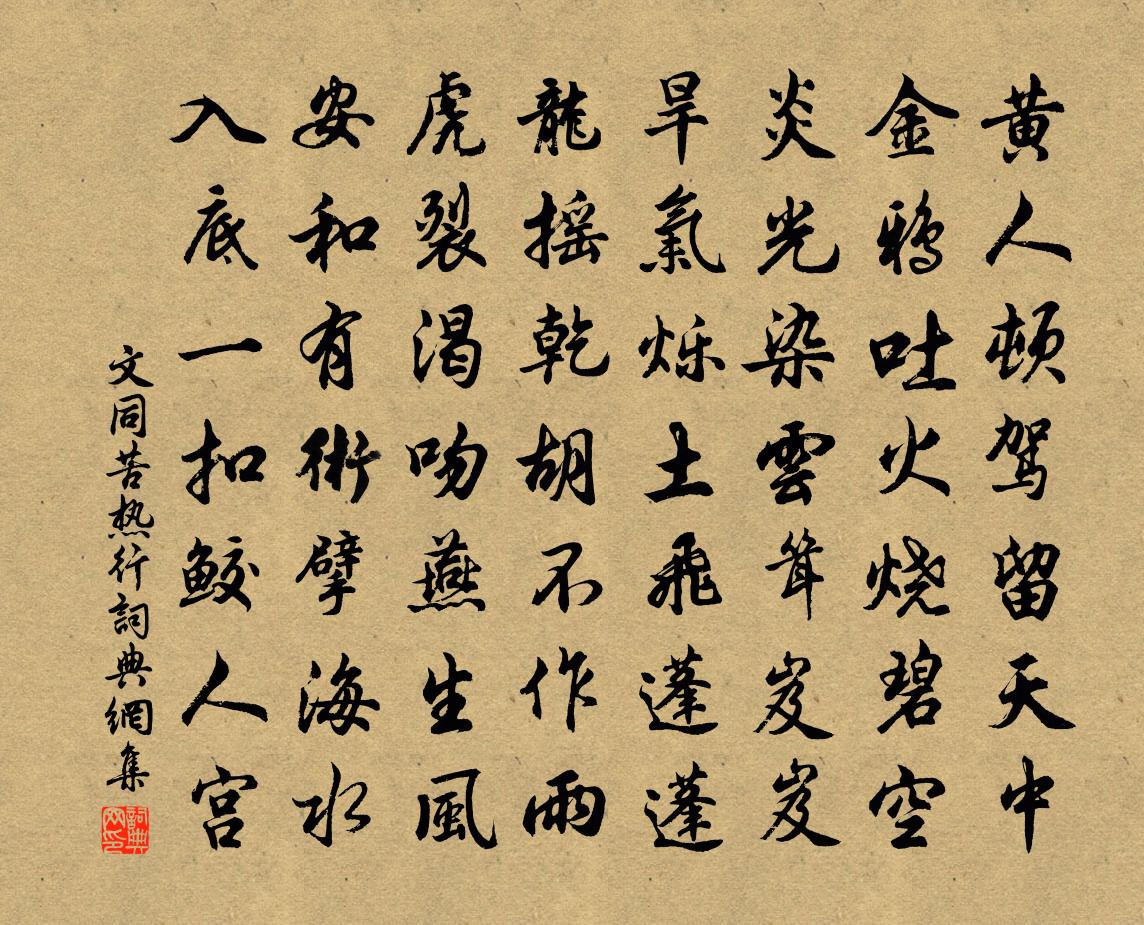 黄人頓駕留天中
金鴉吐火烧碧空
炎光染雲聳岌岌
旱氣烁土飛蓬蓬
龍摇乾胡不作雨
虎裂渴吻燕生風
安和有術擘海水
入底一扣鮫人宫
文同苦热行詞典網集
詞典网印